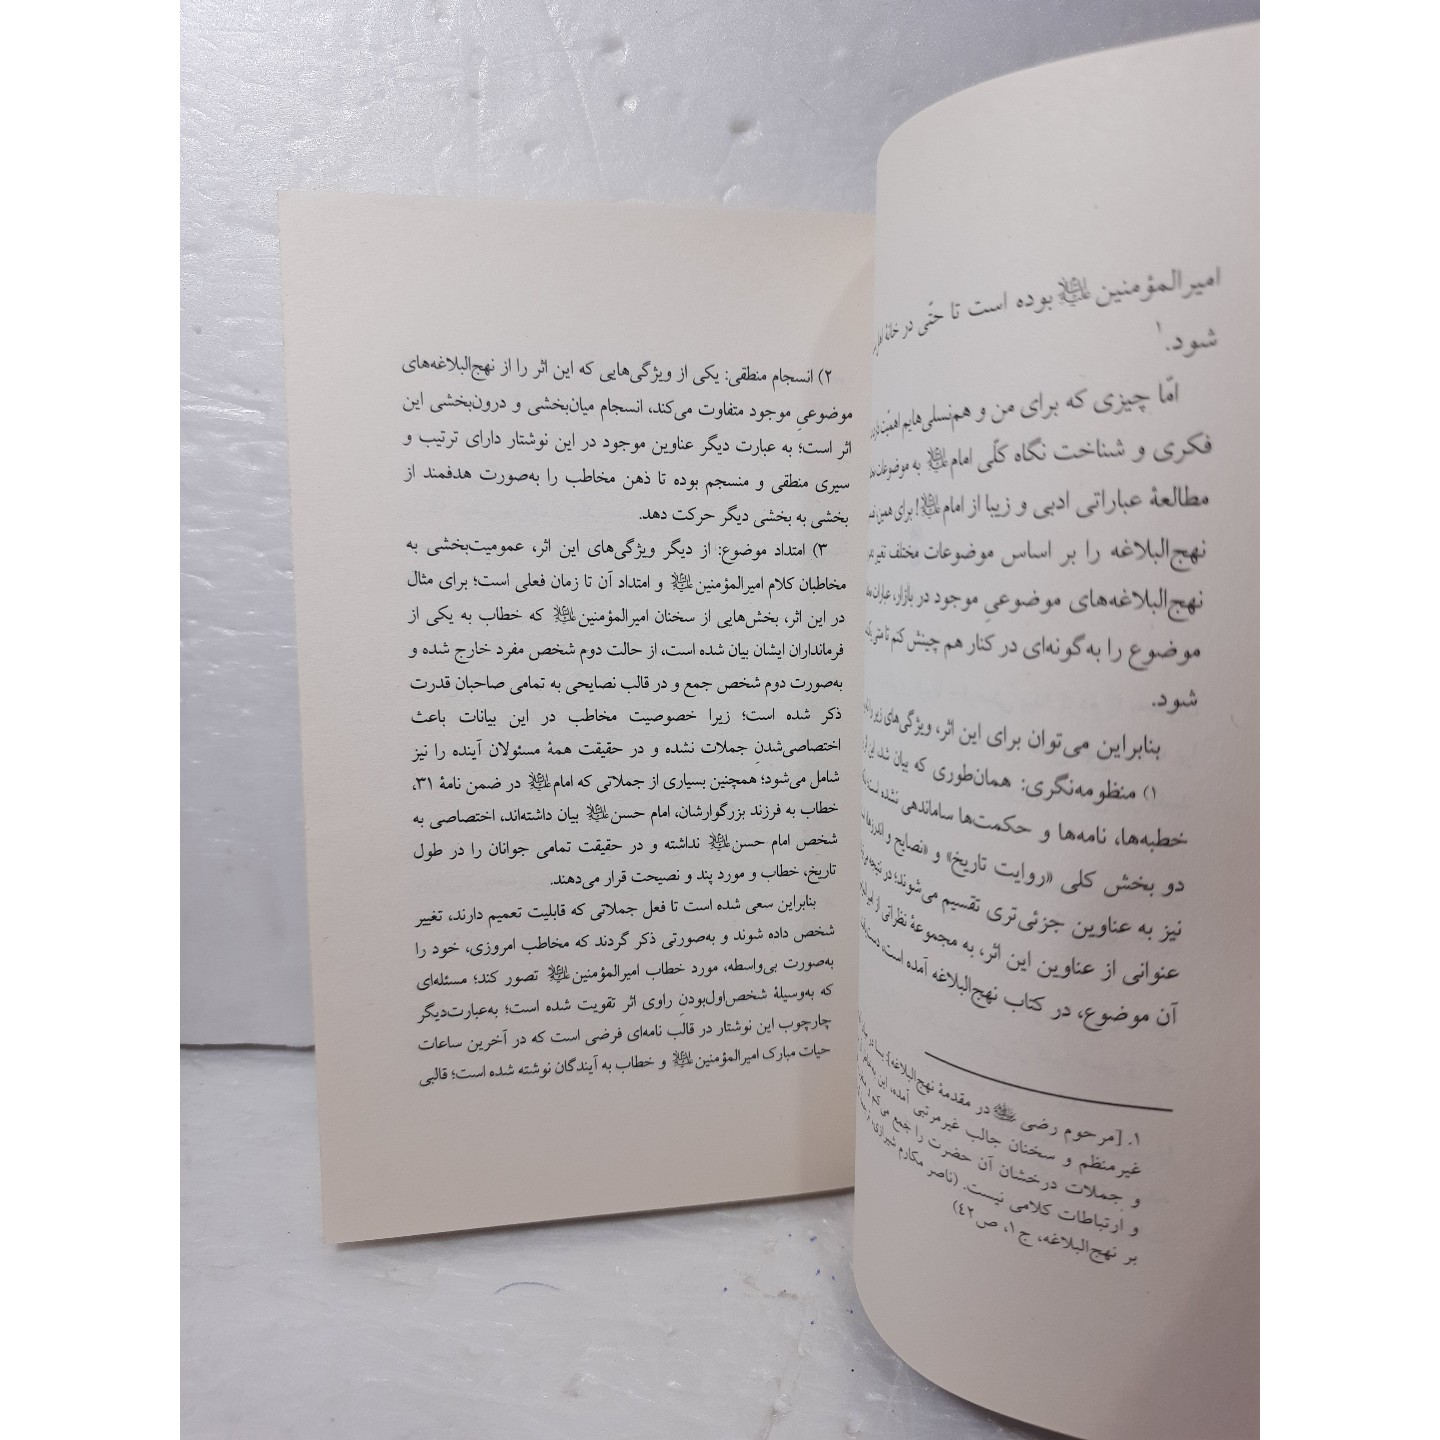 امیرالمؤمنین علیه‌السلام بوده است تا حتّی در خانهٔ
شود.۱
امّا چیزی که برای من و هم‌نسلی‌هایم اهمّیت
فکری و شناخت نگاه کلّی امام علیه‌السلام به موضوعات
مطالعهٔ عباراتی ادبی و زیبا از امام علیه‌السلام! برای همین
نهج‌البلاغه را بر اساس موضوعات مختلف
نهج‌البلاغه‌های موضوعیِ موجود در بازار، عبارات
موضوع را به‌گونه‌ای در کنار هم چینش کنم تا
شود.
بنابراین می‌توان برای این اثر، ویژگی‌های زیر را
۱) منظومه‌نگری: همان‌طوری که بیان شد، این
خطبه‌ها، نامه‌ها و حکمت‌ها ساماندهی نشده است؛
دو بخش کلی «روایت تاریخ» و «نصایح و اندرزها
نیز به عناوین جزئی‌تری تقسیم می‌شوند؛ در نتیجه
عنوانی از عناوین این اثر، به مجموعهٔ نظراتی از
آن موضوع، در کتاب نهج‌البلاغه آمده است،
۱. [مرحوم رضی در مقدمهٔ نهج‌البلاغه]:
غیرمنظم و سخنان جالب غیرمرتبی آمده، این
و جملات درخشان آن حضرت را جمع می‌کنم
و ارتباطات کلامی نیست. (ناصر مکارم شیرازی،
بر نهج‌البلاغه، ج۱، ص۴۲)
۲) انسجام منطقی: یکی از ویژگی‌هایی که این اثر را از نهج‌البلاغه‌های
موضوعیِ موجود متفاوت می‌کند، انسجام میان‌بخشی و درون‌بخشی این
اثر است؛ به عبارت دیگر عناوین موجود در این نوشتار دارای ترتیب و
سیری منطقی و منسجم بوده تا ذهن مخاطب را به‌صورت هدفمند از
بخشی به بخشی دیگر حرکت دهد.
۳) امتداد موضوع: از دیگر ویژگی‌های این اثر، عمومیت‌بخشی به
مخاطبان کلام امیرالمؤمنین علیه‌السلام و امتداد آن تا زمان فعلی است؛ برای مثال
در این اثر، بخش‌هایی از سخنان امیرالمؤمنین علیه‌السلام که خطاب به یکی از
فرمانداران ایشان بیان شده است، از حالت دوم شخص مفرد خارج شده و
به‌صورت دوم شخص جمع و در قالب نصایحی به تمامی صاحبان قدرت
ذکر شده است؛ زیرا خصوصیت مخاطب در این بیانات باعث
اختصاصی‌شدنِ جملات نشده و در حقیقت همهٔ مسئولان آینده را نیز
شامل می‌شود؛ همچنین بسیاری از جملاتی که امام علیه‌السلام در ضمن نامهٔ ۳۱،
خطاب به فرزند بزرگوارشان، امام حسن علیه‌السلام بیان داشته‌اند، اختصاصی به
شخص امام حسن علیه‌السلام نداشته و در حقیقت تمامی جوانان را در طول
تاریخ، خطاب و مورد پند و نصیحت قرار می‌دهند.
بنابراین سعی شده است تا فعل جملاتی که قابلیت تعمیم دارند، تغییر
شخص داده شوند و به‌صورتی ذکر گردند که مخاطب امروزی، خود را
به‌صورت بی‌واسطه، مورد خطاب امیرالمؤمنین علیه‌السلام تصور کند؛ مسئله‌ای
که به‌وسیلهٔ شخص‌اول‌بودنِ راوی اثر تقویت شده است؛ به‌عبارت‌دیگر
چارچوب این نوشتار در قالب نامه‌ای فرضی است که در آخرین ساعات
حیات مبارک امیرالمؤمنین علیه‌السلام و خطاب به آیندگان نوشته شده است؛ قالبی